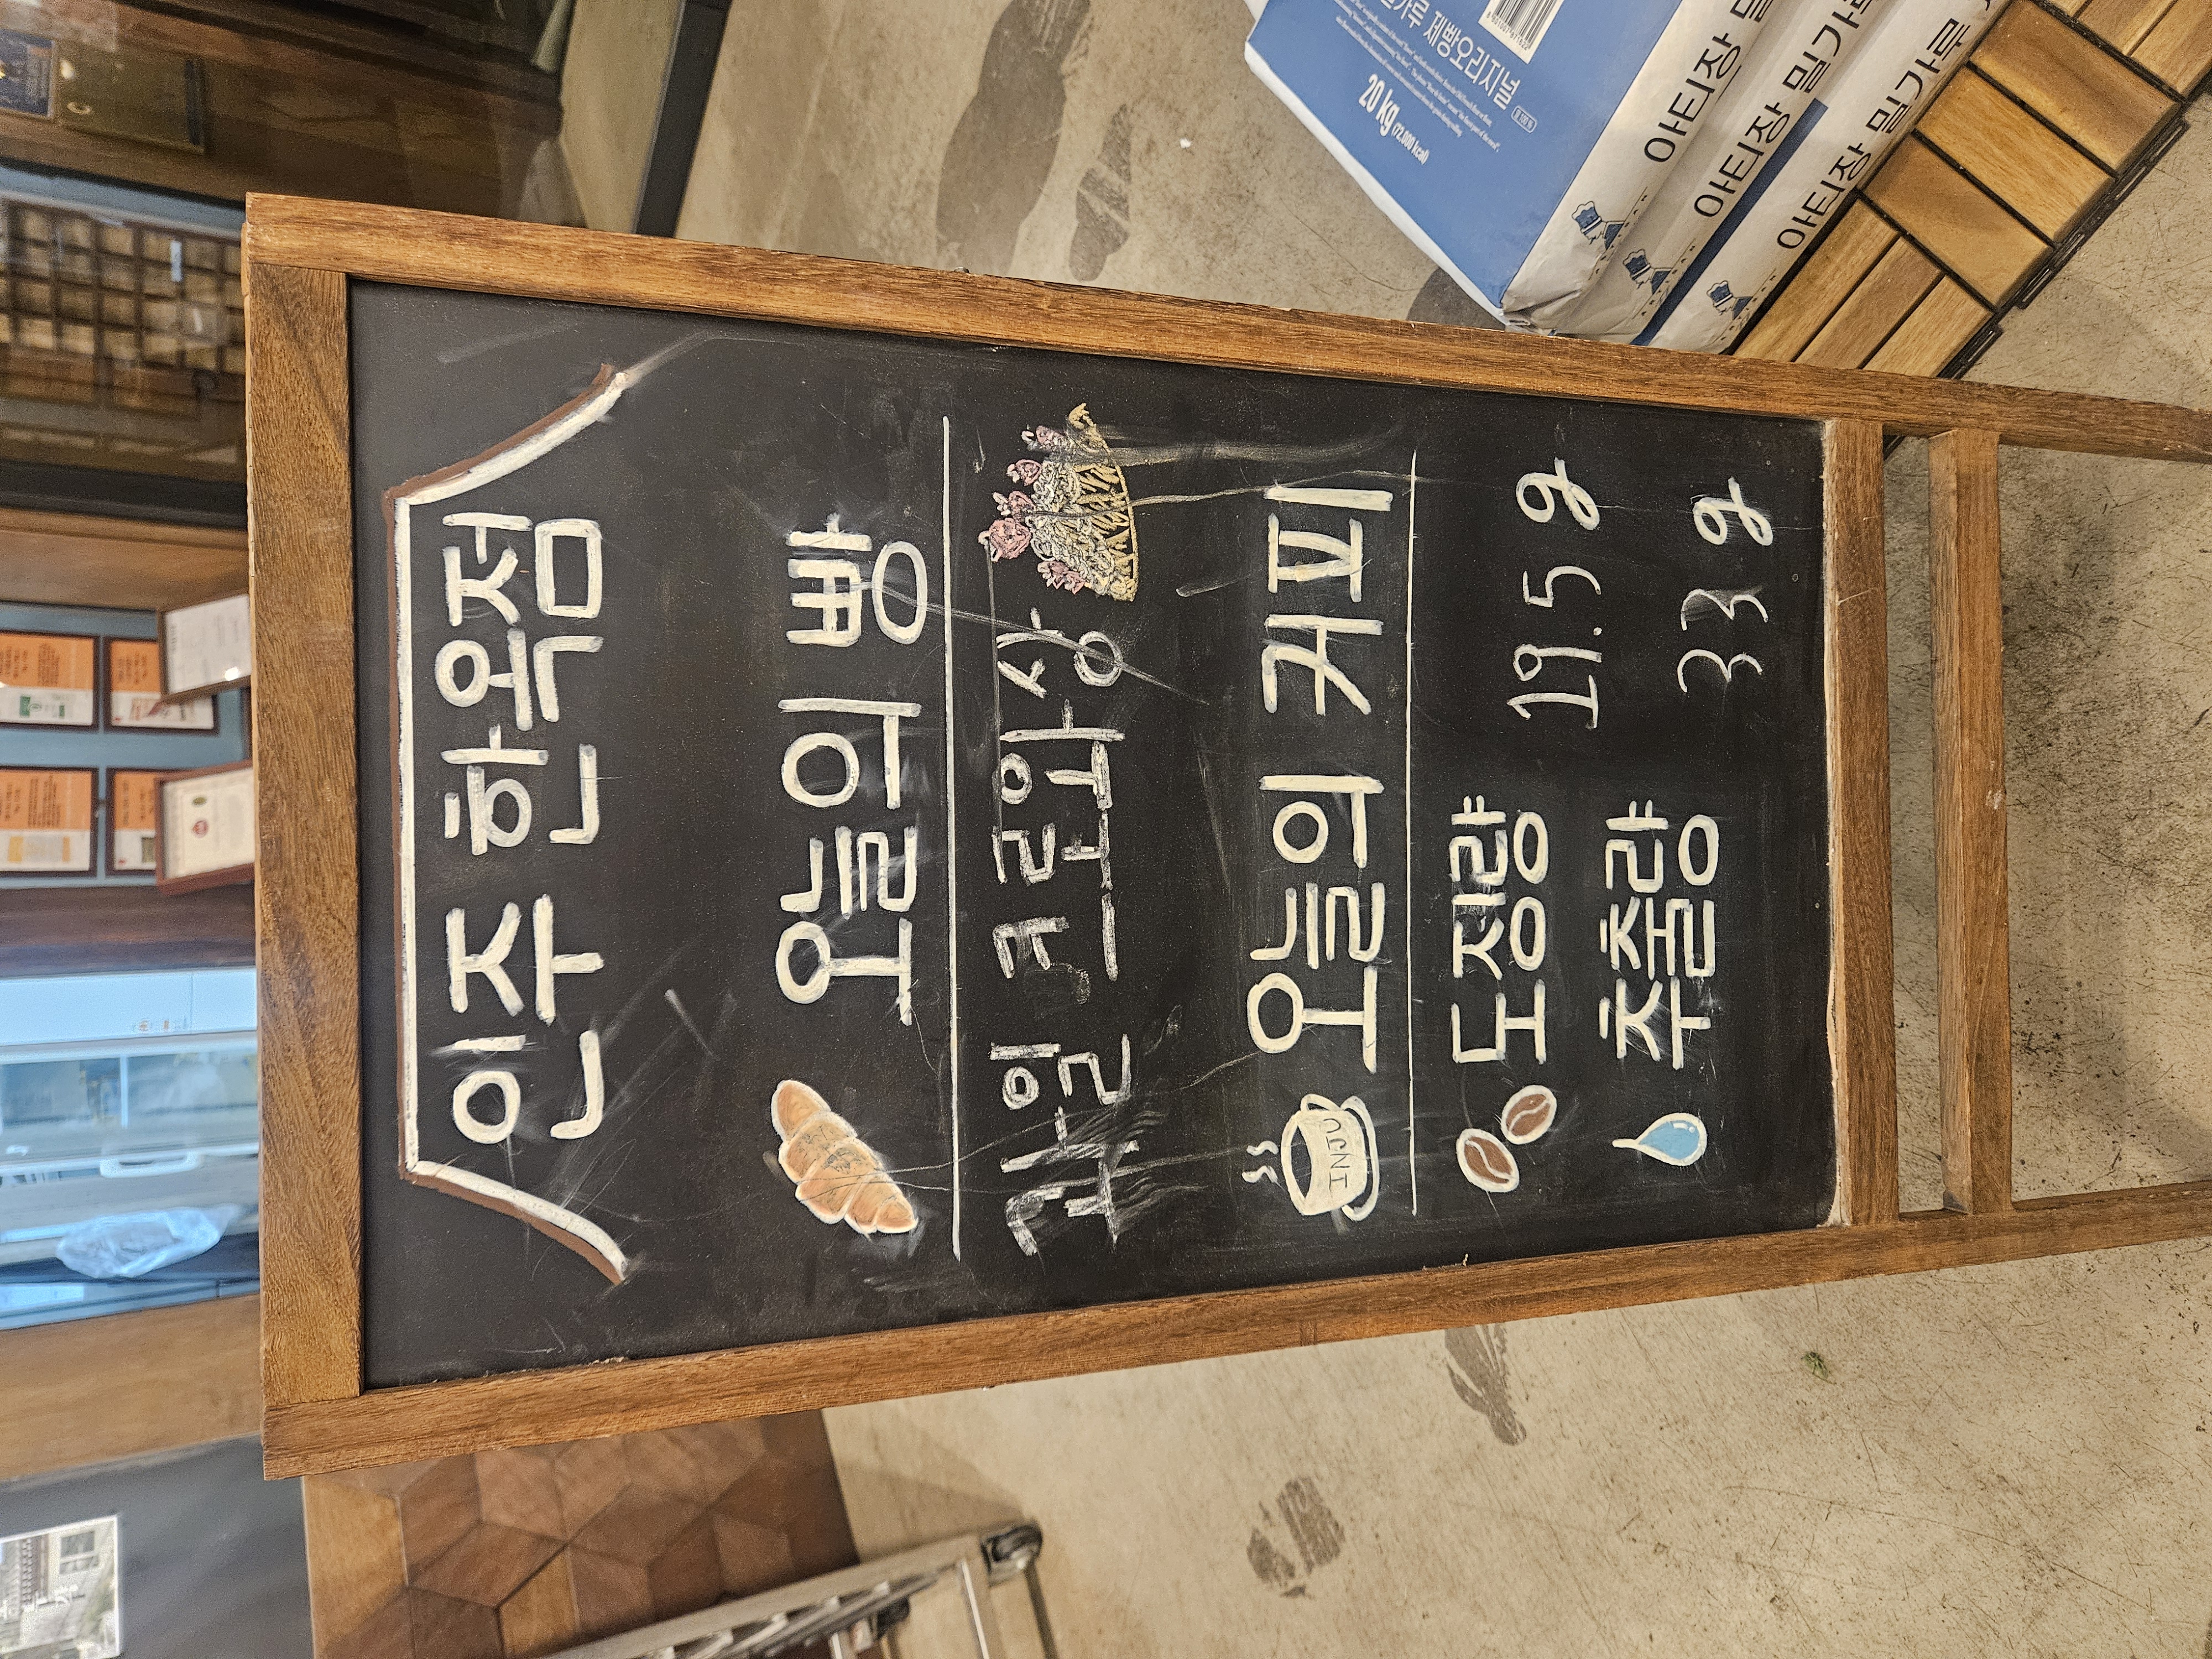 인주 한옥점
오늘의 빵
과일 크로와상
오늘의 커피
INJU
도징량 19.5g
추출량 33g
제빵오리지널
20 kg (72,000 kcal)
아티장
아티장 밀가루
아티장 밀가루